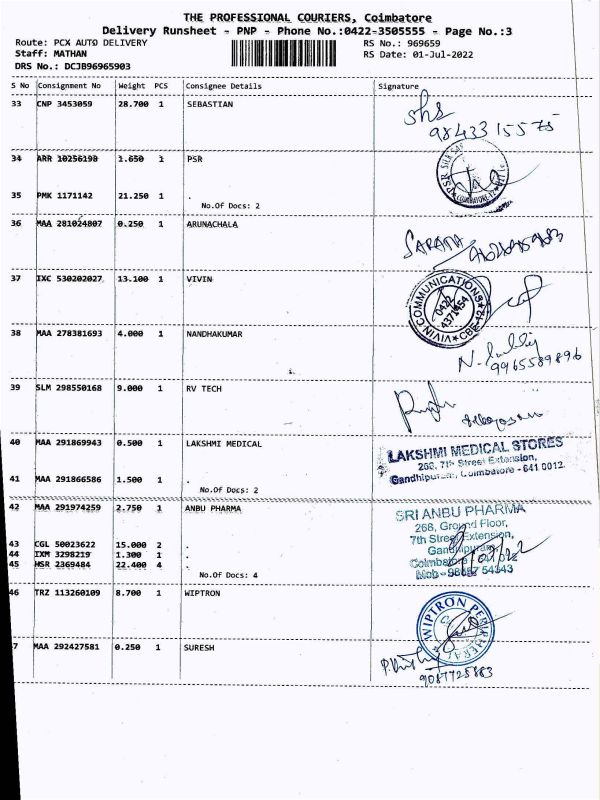 THE PROFESSIONAL COURIERS, Coimbatore
Delivery Runsheet - PNP - Phone No.:0422-3505555 - Page No.:3
Route: PCX AUTO DELIVERY
RS No.: 969659
Staff: MATHAN
RS Date: 01-Jul-2022
DRS No.: DCJB96965903
S No Consignment No Weight PCS Consignee Details Signature
33 CNP 3453059 28.700 1 SEBASTIAN
98433 15575
34 ARR 10256190 1.650 1 PSR
35 PMK 1171142 21.250 1 .
No.Of Docs: 2
36 MAA 281024807 0.250 1 ARUNACHALA
SARANA
37 IXC 530202027 13.100 1 VIVIN
VIVIN COMMUNICATIONS
0422
4371454
CBE-12
38 MAA 278381693 4.000 1 NANDHAKUMAR
9965589896
39 SLM 298550168 9.000 1 RV TECH
40 MAA 291869943 0.500 1 LAKSHMI MEDICAL
LAKSHMI MEDICAL STORES
268, 7th Street Extension,
Gandhipuram, Coimbatore - 641 0012.
41 MAA 291866586 1.500 1 .
No.Of Docs: 2
42 MAA 291974259 2.750 1 ANBU PHARMA
SRI ANBU PHARMA
268, Ground Floor,
7th Street Extension,
Gandhipuram
43 CGL 50023622 15.000 2 .
44 IXM 3298219 1.300 1 .
45 HSR 2369484 22.400 4 .
No.Of Docs: 4
46 TRZ 113260109 8.700 1 WIPTRON
WIPTRON PERIPHERAL
7 MAA 292427581 0.250 1 SURESH
9087725883